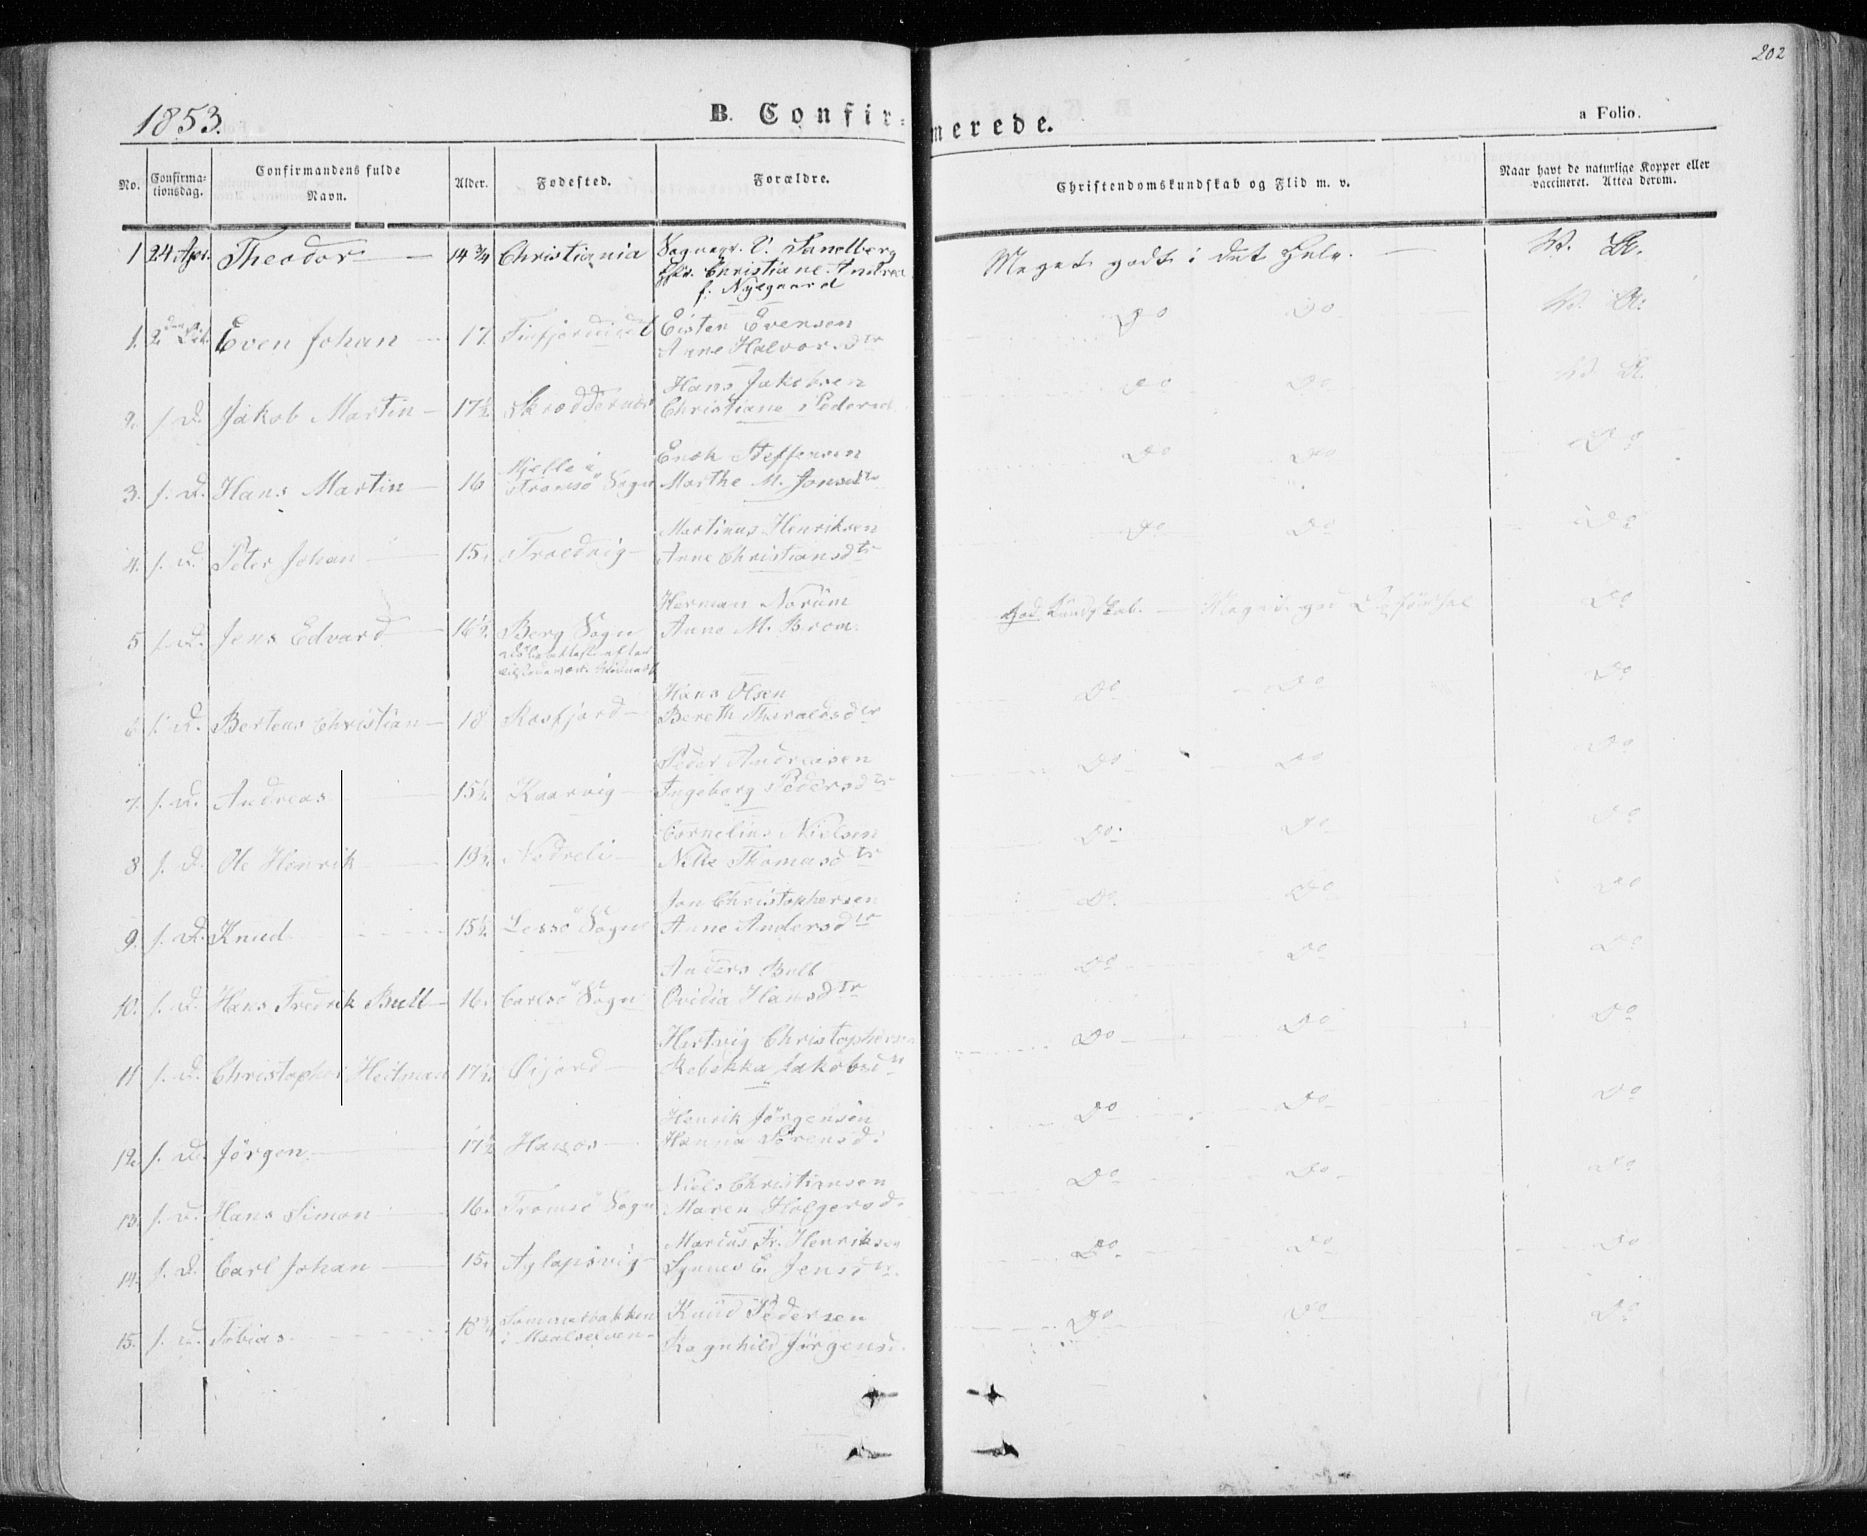 202
1853.
B. Confir-
merede.
a Folio.
No.
Confirma-
tionsdag.
Confirmandens fulde
Navn.
Alder.
Fødested.
Forældre.
Christendomskundskab og Flid m. v.
Naar havt de naturlige Kopper eller
vaccineret. Attea derom.
1 24 Apr. Theodor 14 3/4 Christiania Sognepr. C. Sandberg
Christiane Andrea
f. Nygaard
Meget godt i det Hele.
1. Even Johan 17 Eisten Evensen
Anne Halvorsdtr
Do Do
2. s. D. Jakob Martin 17 1/2 Hans Jakobsen
Christiane Pedersd
Do Do
3. s. D. Hans Martin 16 Tromsö Sogn Enok Steffensen
Marthe M. Jonsdtr
Do Do Do
4. s. D. Peter Johan 15. Troldvig Martinus Henriksen
Anne Christiansdtr
Do Do Do
5 s. D. Jens Edvard 16 1/2 Berg Sogn Herman Norum
Anne M. Brom
God Kundskab. Meget god Opførsel Do
6 s. D. Berteus Christian 18 Rosfjord Hans Olsen
Bereth Thoraldsdtr
Do Do Do
7. s. D. Andreas 15 1/2 Kaarvig Peder Andreasen
Ingeborg Pedersdtr
Do Do Do
8 s. D. Ole Henrik Nedreli Cornelius Nielsen
Thomasdtr
Do Do Do
9. s. D. Knud 15 1/2 Lessö Sogn Jon Christophersen
Anne Andersdtr
Do Do Do
10. s. D. Hans Fredrik Bull 16. Carlsö Sogn Anders Bull
Ovidia Hansdtr
Do Do Do
11 s. D. Christopher Heitman 17 1/2 Øijord Hertvig Christophersen
Rebekka Jakobsdtr
Do Do Do
12. s. D. Jörgen 17 1/2 Henrik Jörgensen
Hanna Sörensd.
Do Do Do
13. s. D. Hans Simon 16. Tromsö Sogn Niels Christiansen
Maren Holgersd.
Do Do Do
14. s. D. Carl Johan 15. Aglapsvig Marcus Fr. Henriksen
Jensdtr.
Do Do Do
15. s. D. Tobias Knud Pedersen
i Maalselven Ragnhild Jörgensd.
Do Do Do